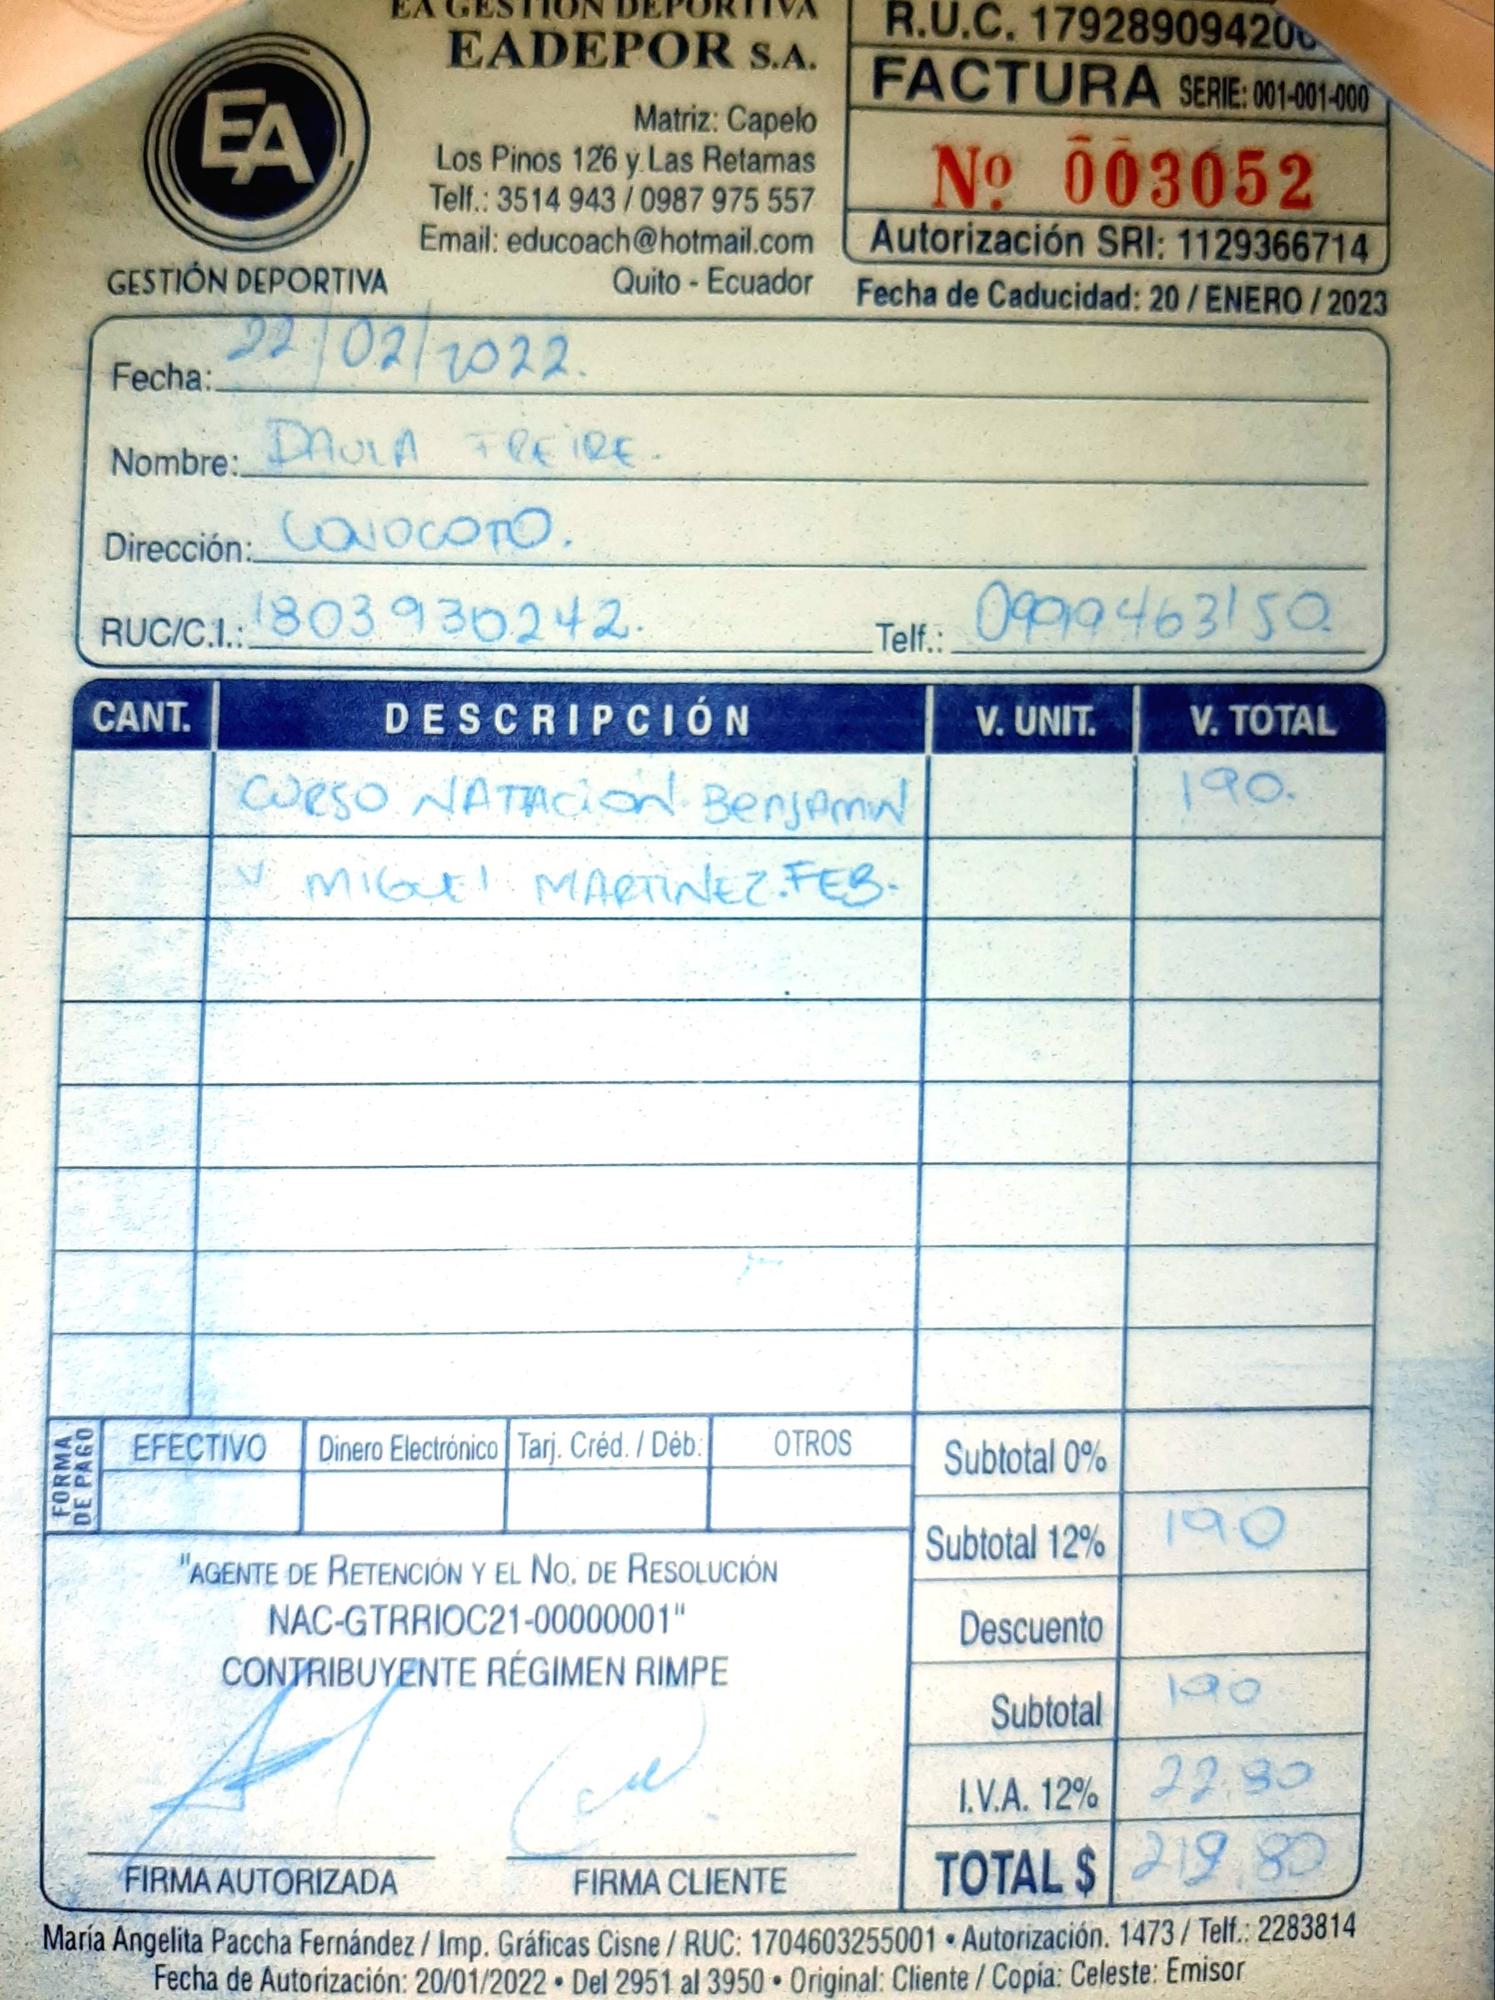 EA GESTIÓN DEPORTIVA
EADEPOR S.A.
Matriz: Capelo
Los Pinos 126 y Las Retamas
Telf.: 3514 943 / 0987 975 557
Email: educoach@hotmail.com
Quito - Ecuador
EA
GESTIÓN DEPORTIVA
R.U.C. 179289094200
FACTURA SERIE: 001-001-000
Nº 003052
Autorización SRI: 1129366714
Fecha de Caducidad: 20 / ENERO / 2023
Fecha: 22/02/2022.
Nombre: DAULA FREIRE.
Dirección: CONOCOTO.
RUC/C.I.: 1803930242. Telf.: 0999463150.
CANT. DESCRIPCIÓN V. UNIT. V. TOTAL
CURSO NATACIÓN BENJAMIN 190.
Y MIGUEL MARTINEZ. FEB.
FORMA DE PAGO
EFECTIVO Dinero Electrónico Tarj. Créd. / Déb. OTROS
Subtotal 0%
Subtotal 12% 190
Descuento
Subtotal 190
I.V.A. 12% 22.80
TOTAL $ 212.80
"AGENTE DE RETENCIÓN Y EL No. DE RESOLUCIÓN
NAC-GTRRIOC21-00000001"
CONTRIBUYENTE RÉGIMEN RIMPE
FIRMA AUTORIZADA FIRMA CLIENTE
María Angelita Paccha Fernández / Imp. Gráficas Cisne / RUC: 1704603255001 • Autorización. 1473 / Telf.: 2283814
Fecha de Autorización: 20/01/2022 • Del 2951 al 3950 • Original: Cliente / Copia: Celeste: Emisor